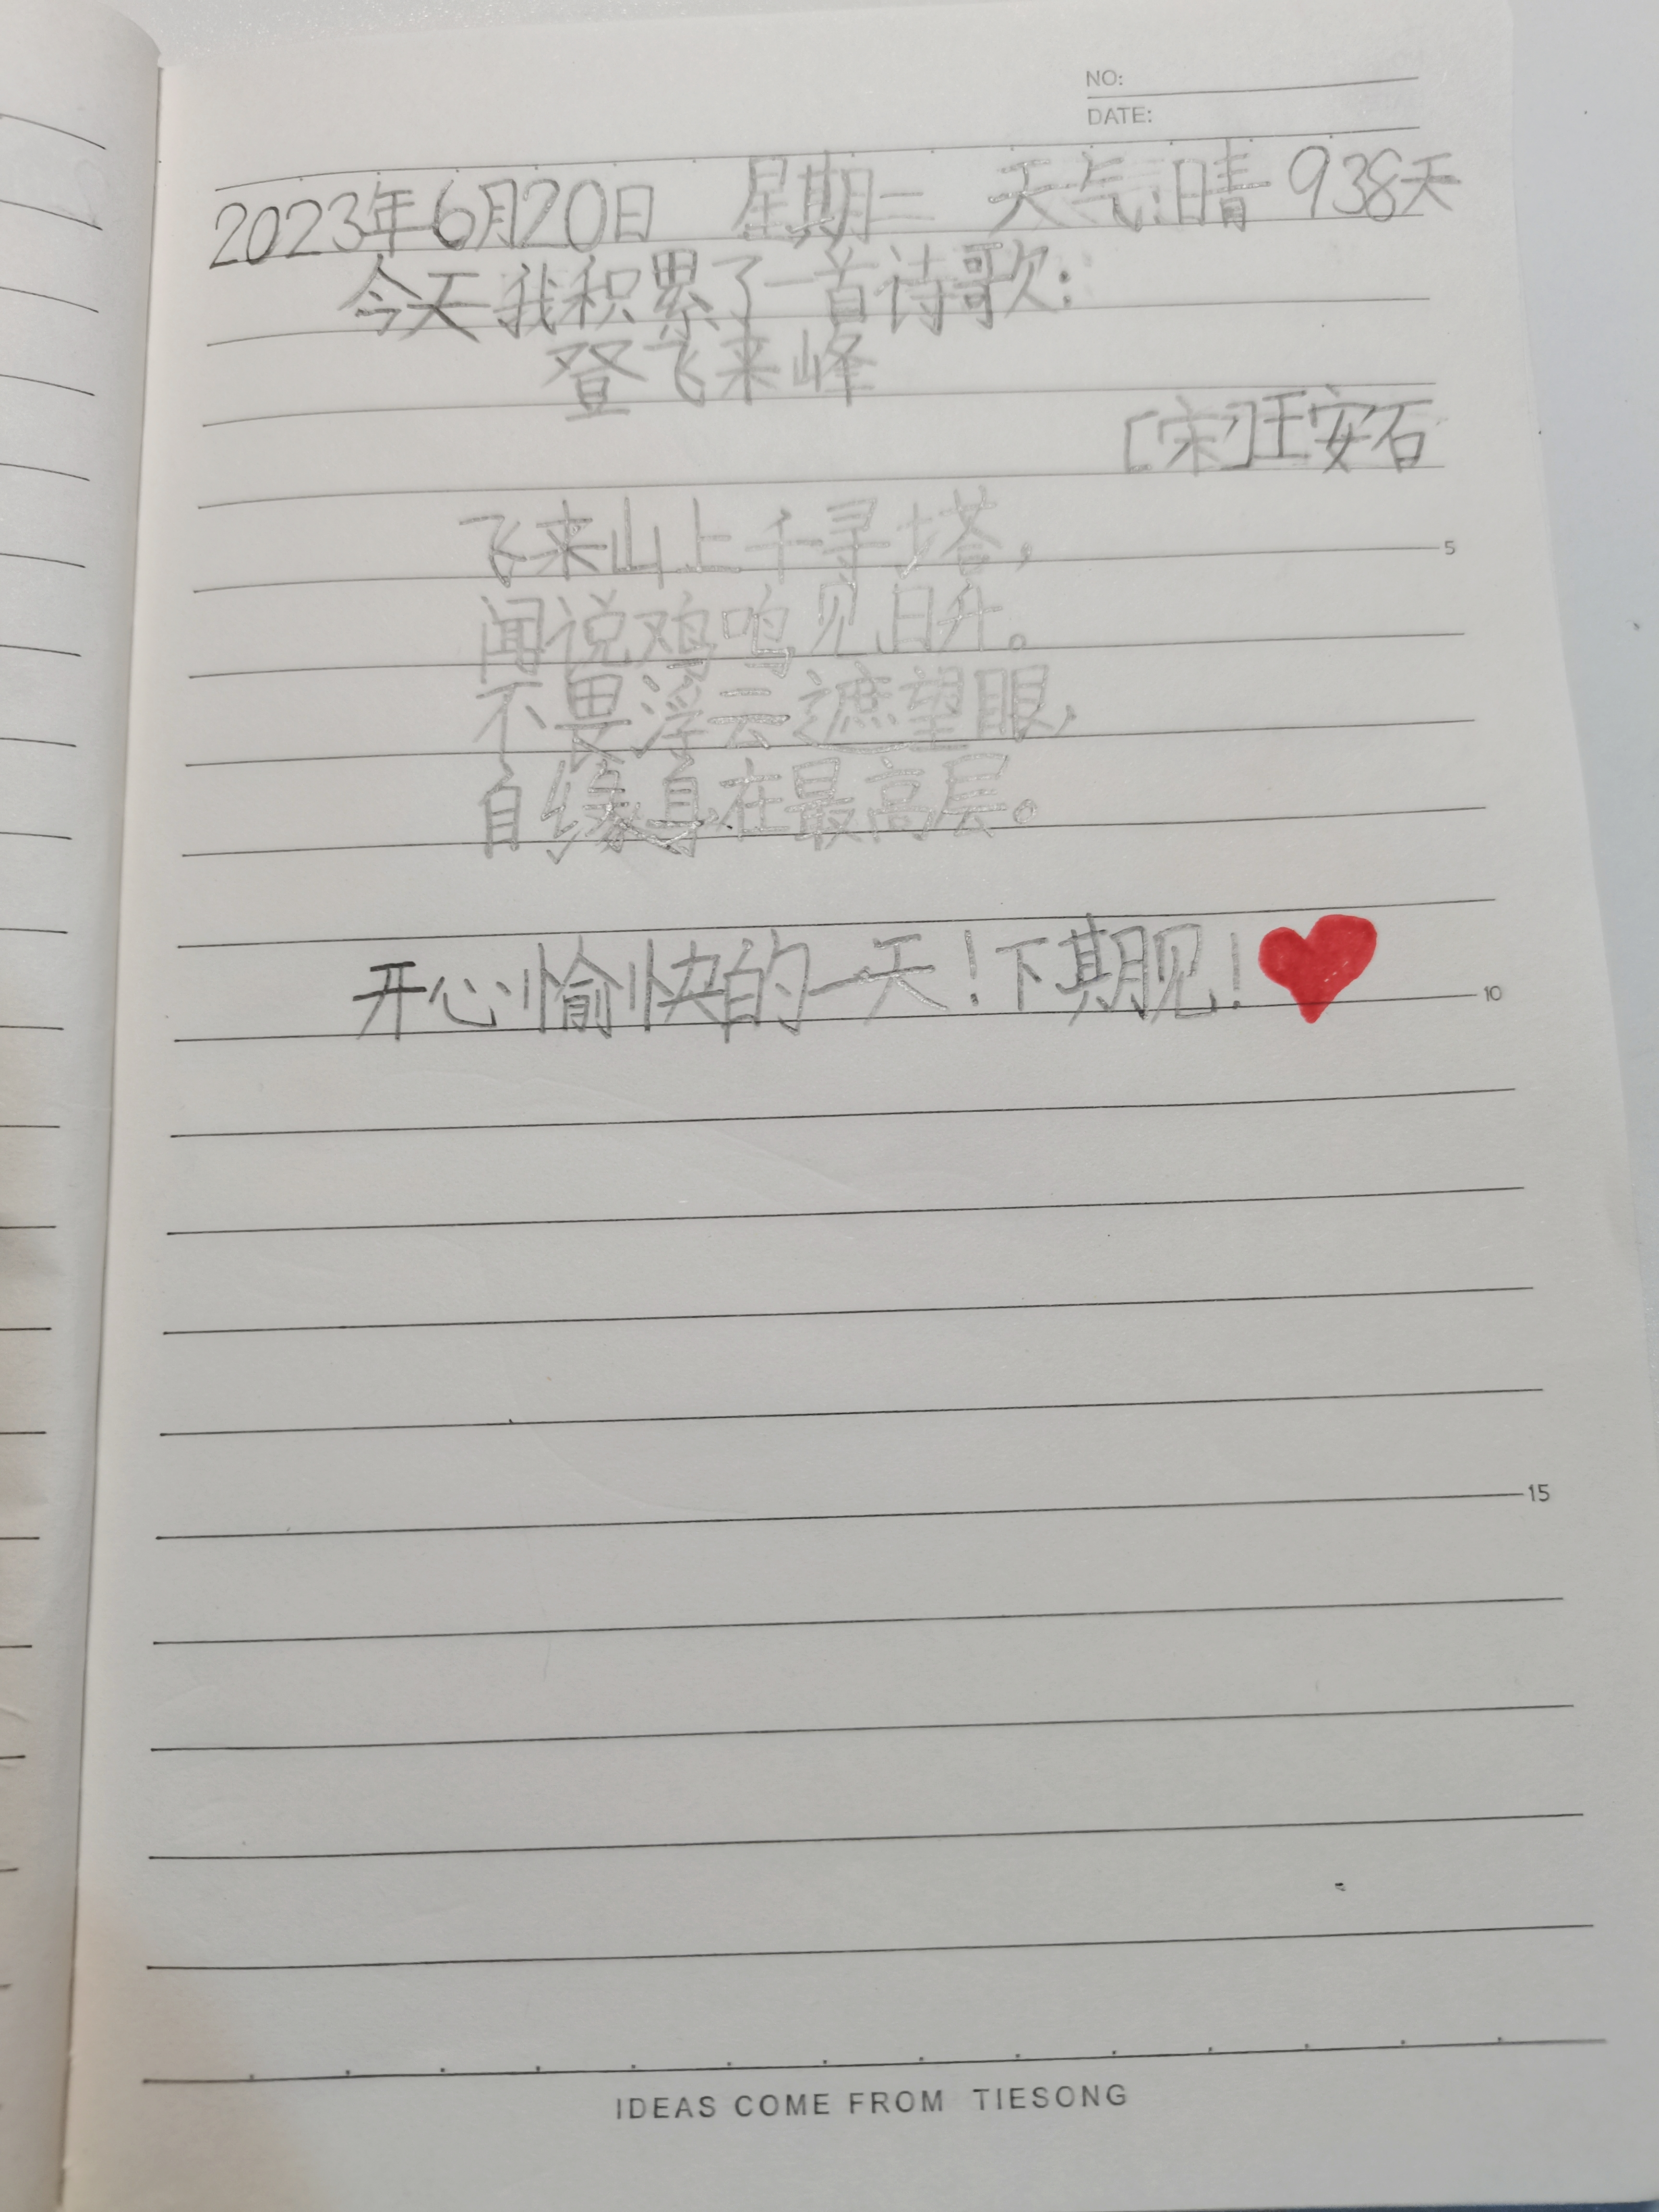 NO:
DATE:
2023年6月20日 星期二 天气:晴 938天
今天我积累了一首诗歌:
登飞来峰
[宋]王安石
飞来山上千寻塔,
闻说鸡鸣见日升。
不畏浮云遮望眼,
自缘身在最高层。
5
开心愉快的一天!下期见!
10
15
IDEAS COME FROM TIESONG